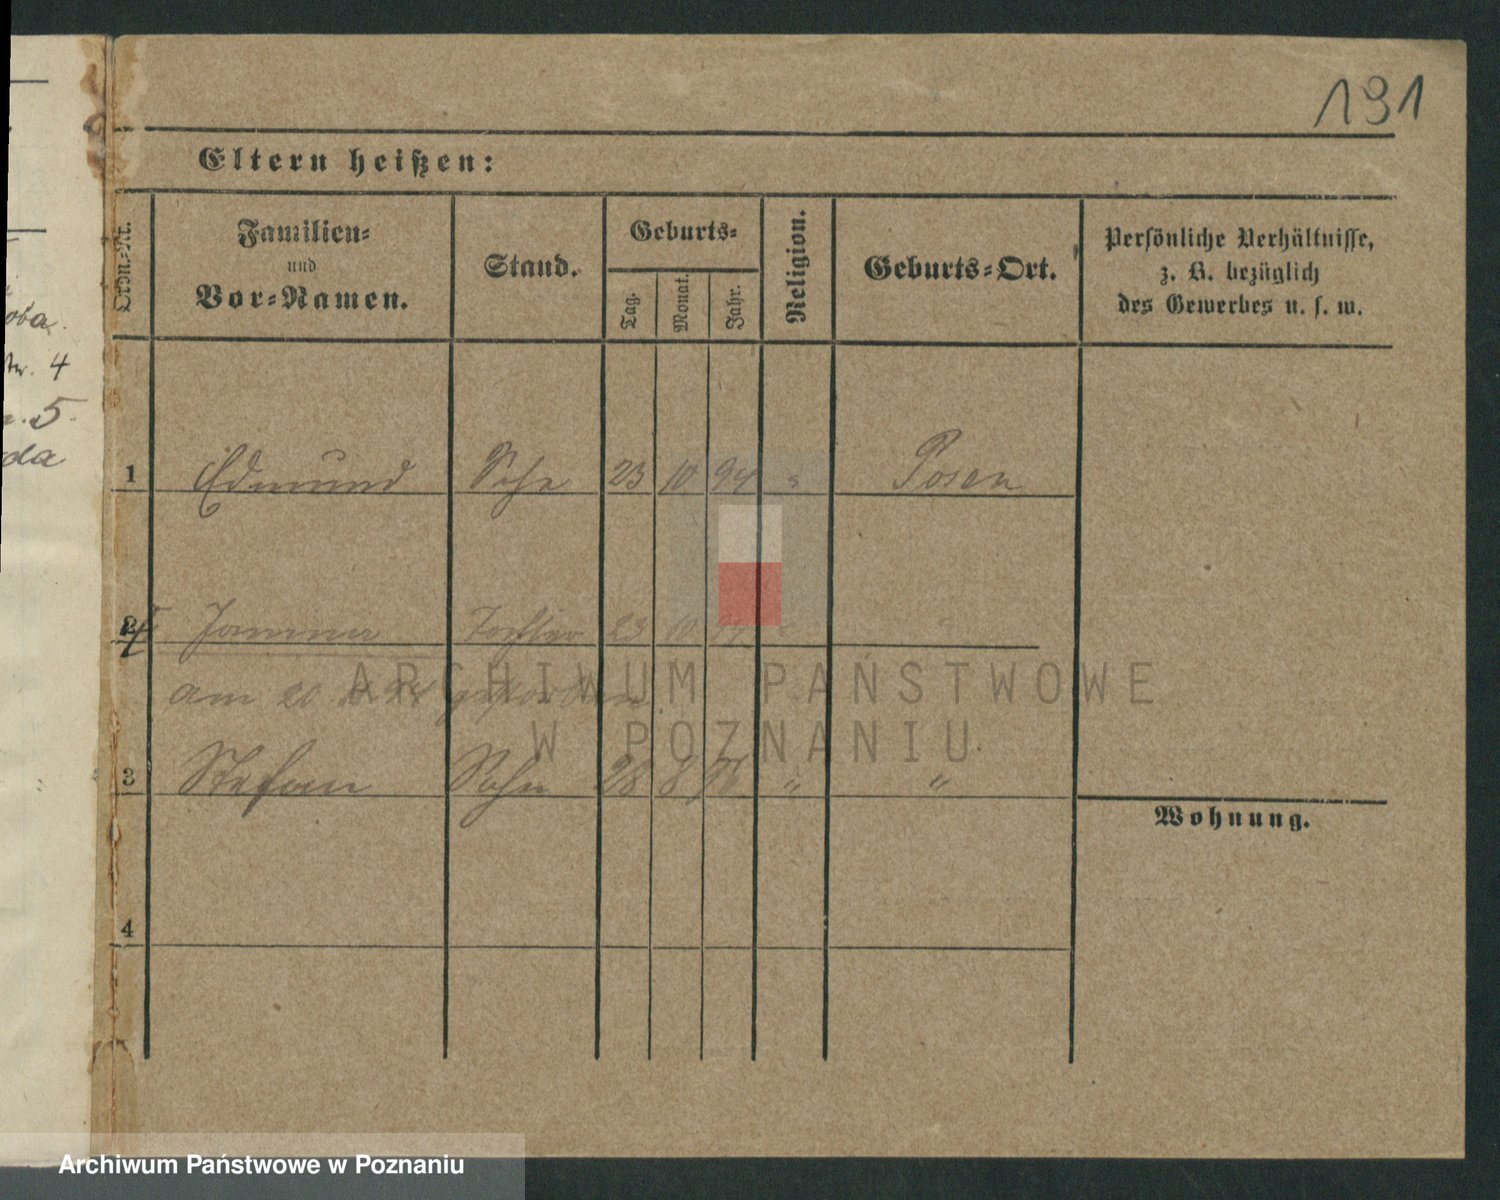 191
Eltern heißen:
Ordn.-Nr.
Familien-
und
Vor-Namen.
Stand.
Geburts-
Tag.
Monat.
Jahr.
Religion.
Geburts-Ort.
Persönliche Verhältnisse,
z. B. bezüglich
des Gewerbes u. s. w.
oba.
Nr. 4
5.
da
1 Edmund Sohn 23 10 94 " Posen
2 Tochter 23 10
am 20 gestorben.
3 Stefan Sohn 28 8 96 " "
Wohnung.
4
ARCHIWUM PAŃSTWOWE
W POZNANIU
Archiwum Państwowe w Poznaniu